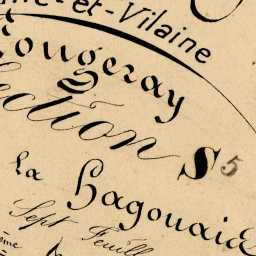 -et-Vilaine
ougeray
ection S 5
La Hagouai
Sept Feuill